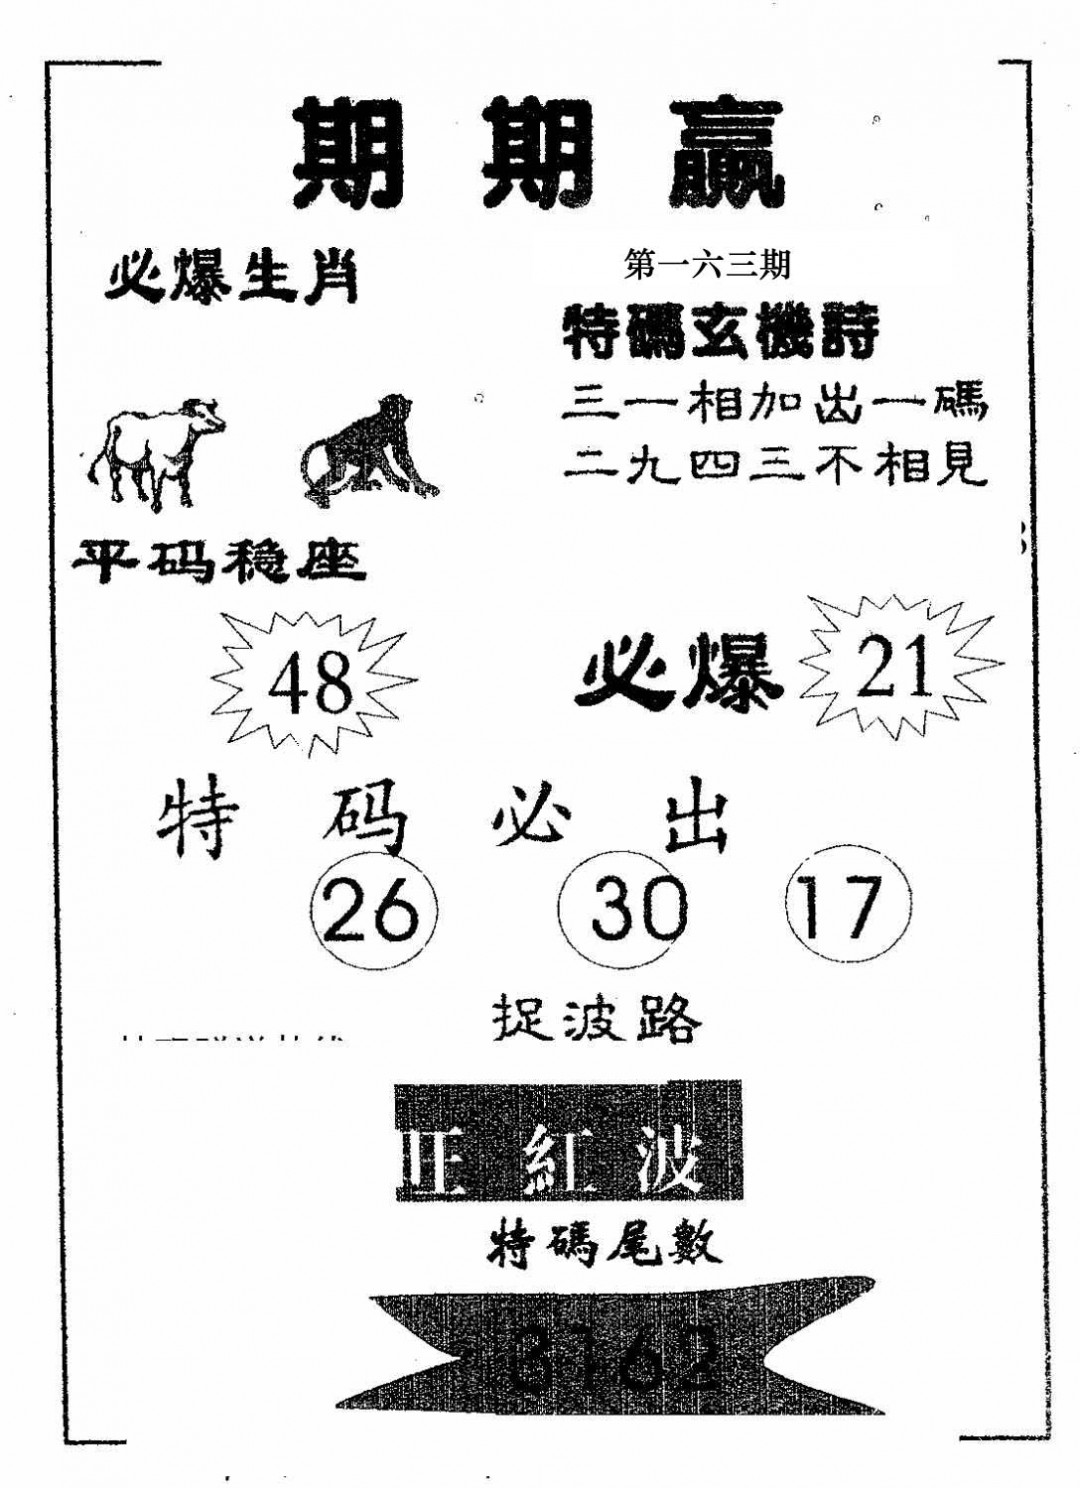 期期贏
必爆生肖
第一六三期
特碼玄機詩
三一相加出一碼
二九四三不相見
平码稳座
48
必爆 21
特码必出
26 30 17
捉波路
旺紅波
特碼尾數
3162